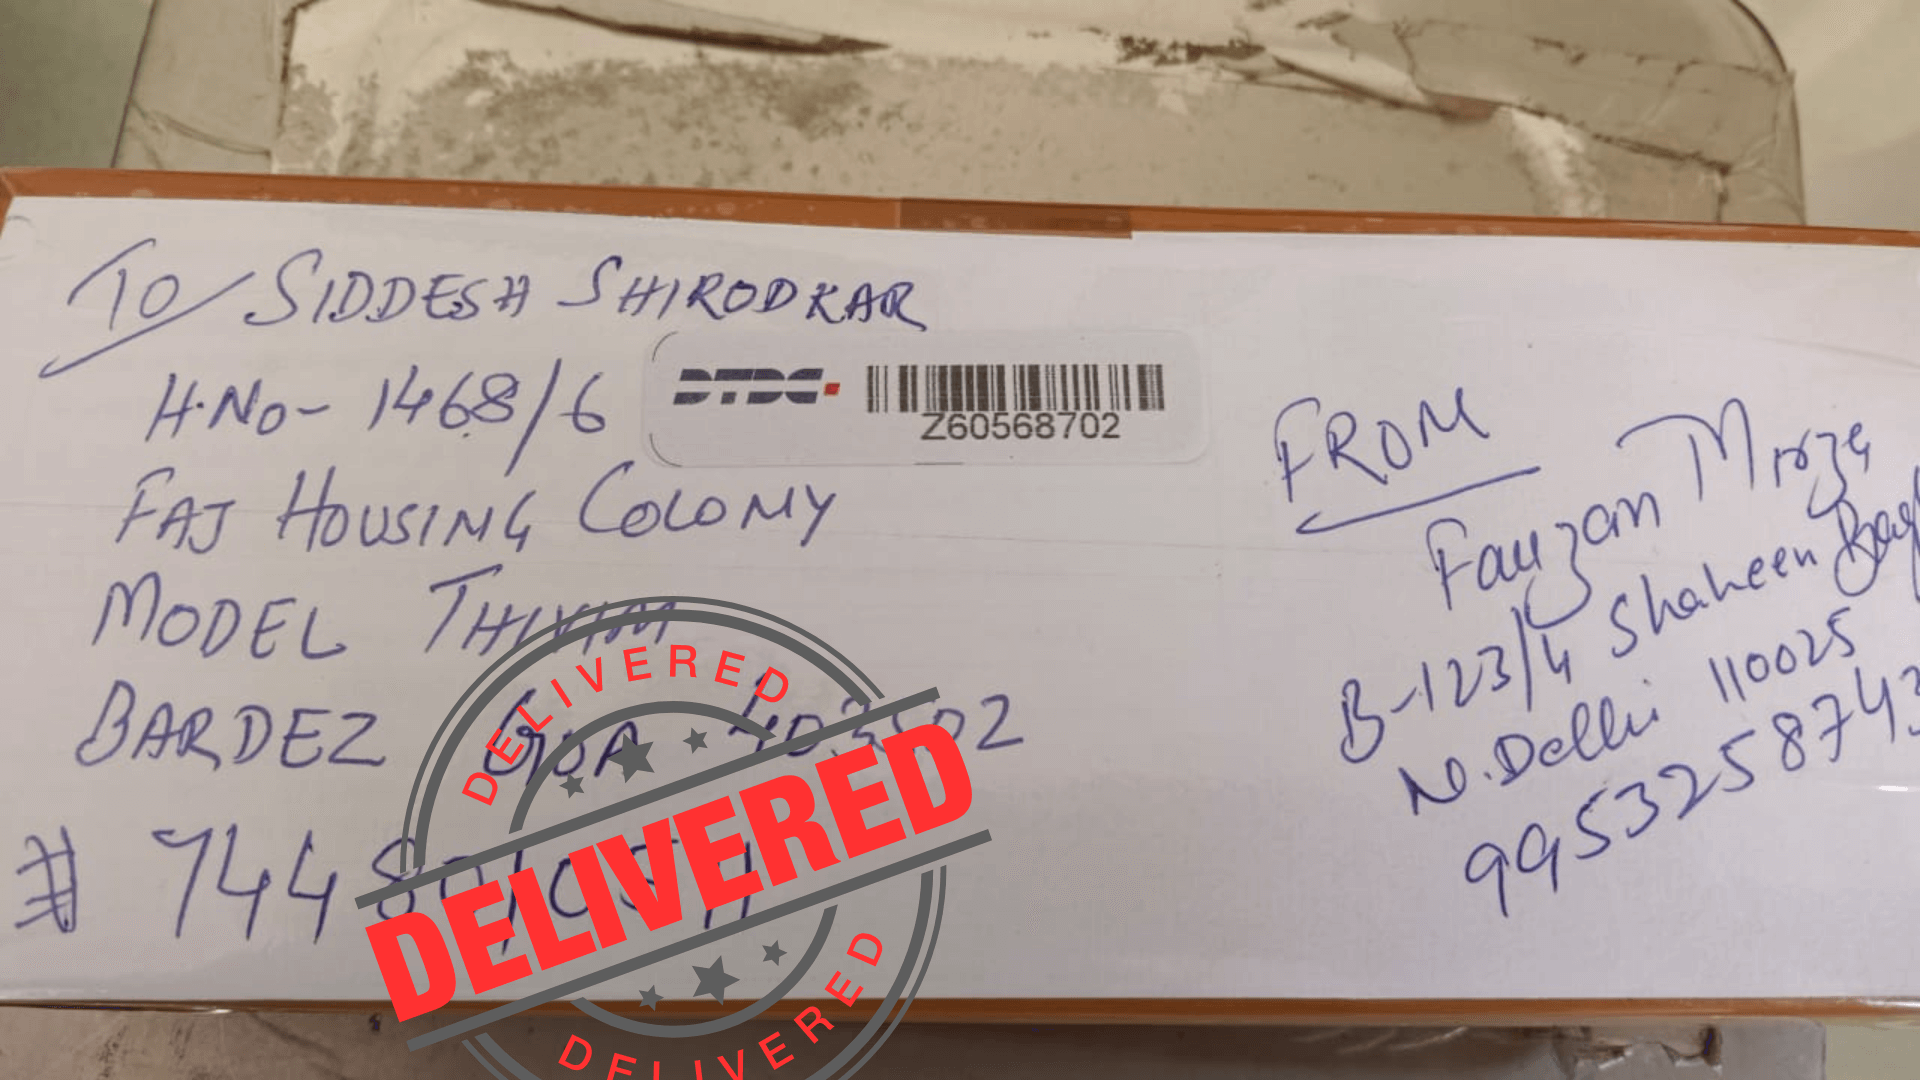 TO SIDDESH SHIRODKAR
H.NO- 1468/6
FAJ HOUSING COLONY
MODEL THIVIM
BARDEZ GOA 403502
# 7448
DTDC
Z60568702
FROM
Fauzan Mirza
B-123/4 Shaheen
N.Delhi 110025
995325874
DELIVERED
DELIVERED
DELIVERED